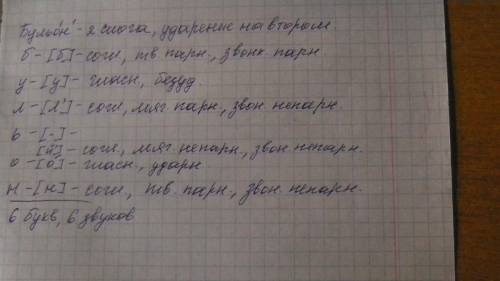 Бульо́н - 2 слога, ударение на втором.
б - [б] - согл, тв парн., звонк. парн
у - [у] - гласн, безуд.
л - [л'] - согл, мяг парн., звон непарн.
ь - [-] -
[й] - согл, мяг непарн., звон. непарн.
о - [о́] - гласн., ударн
н - [н] - согл, тв. парн., звон. непарн.
6 букв, 6 звуков